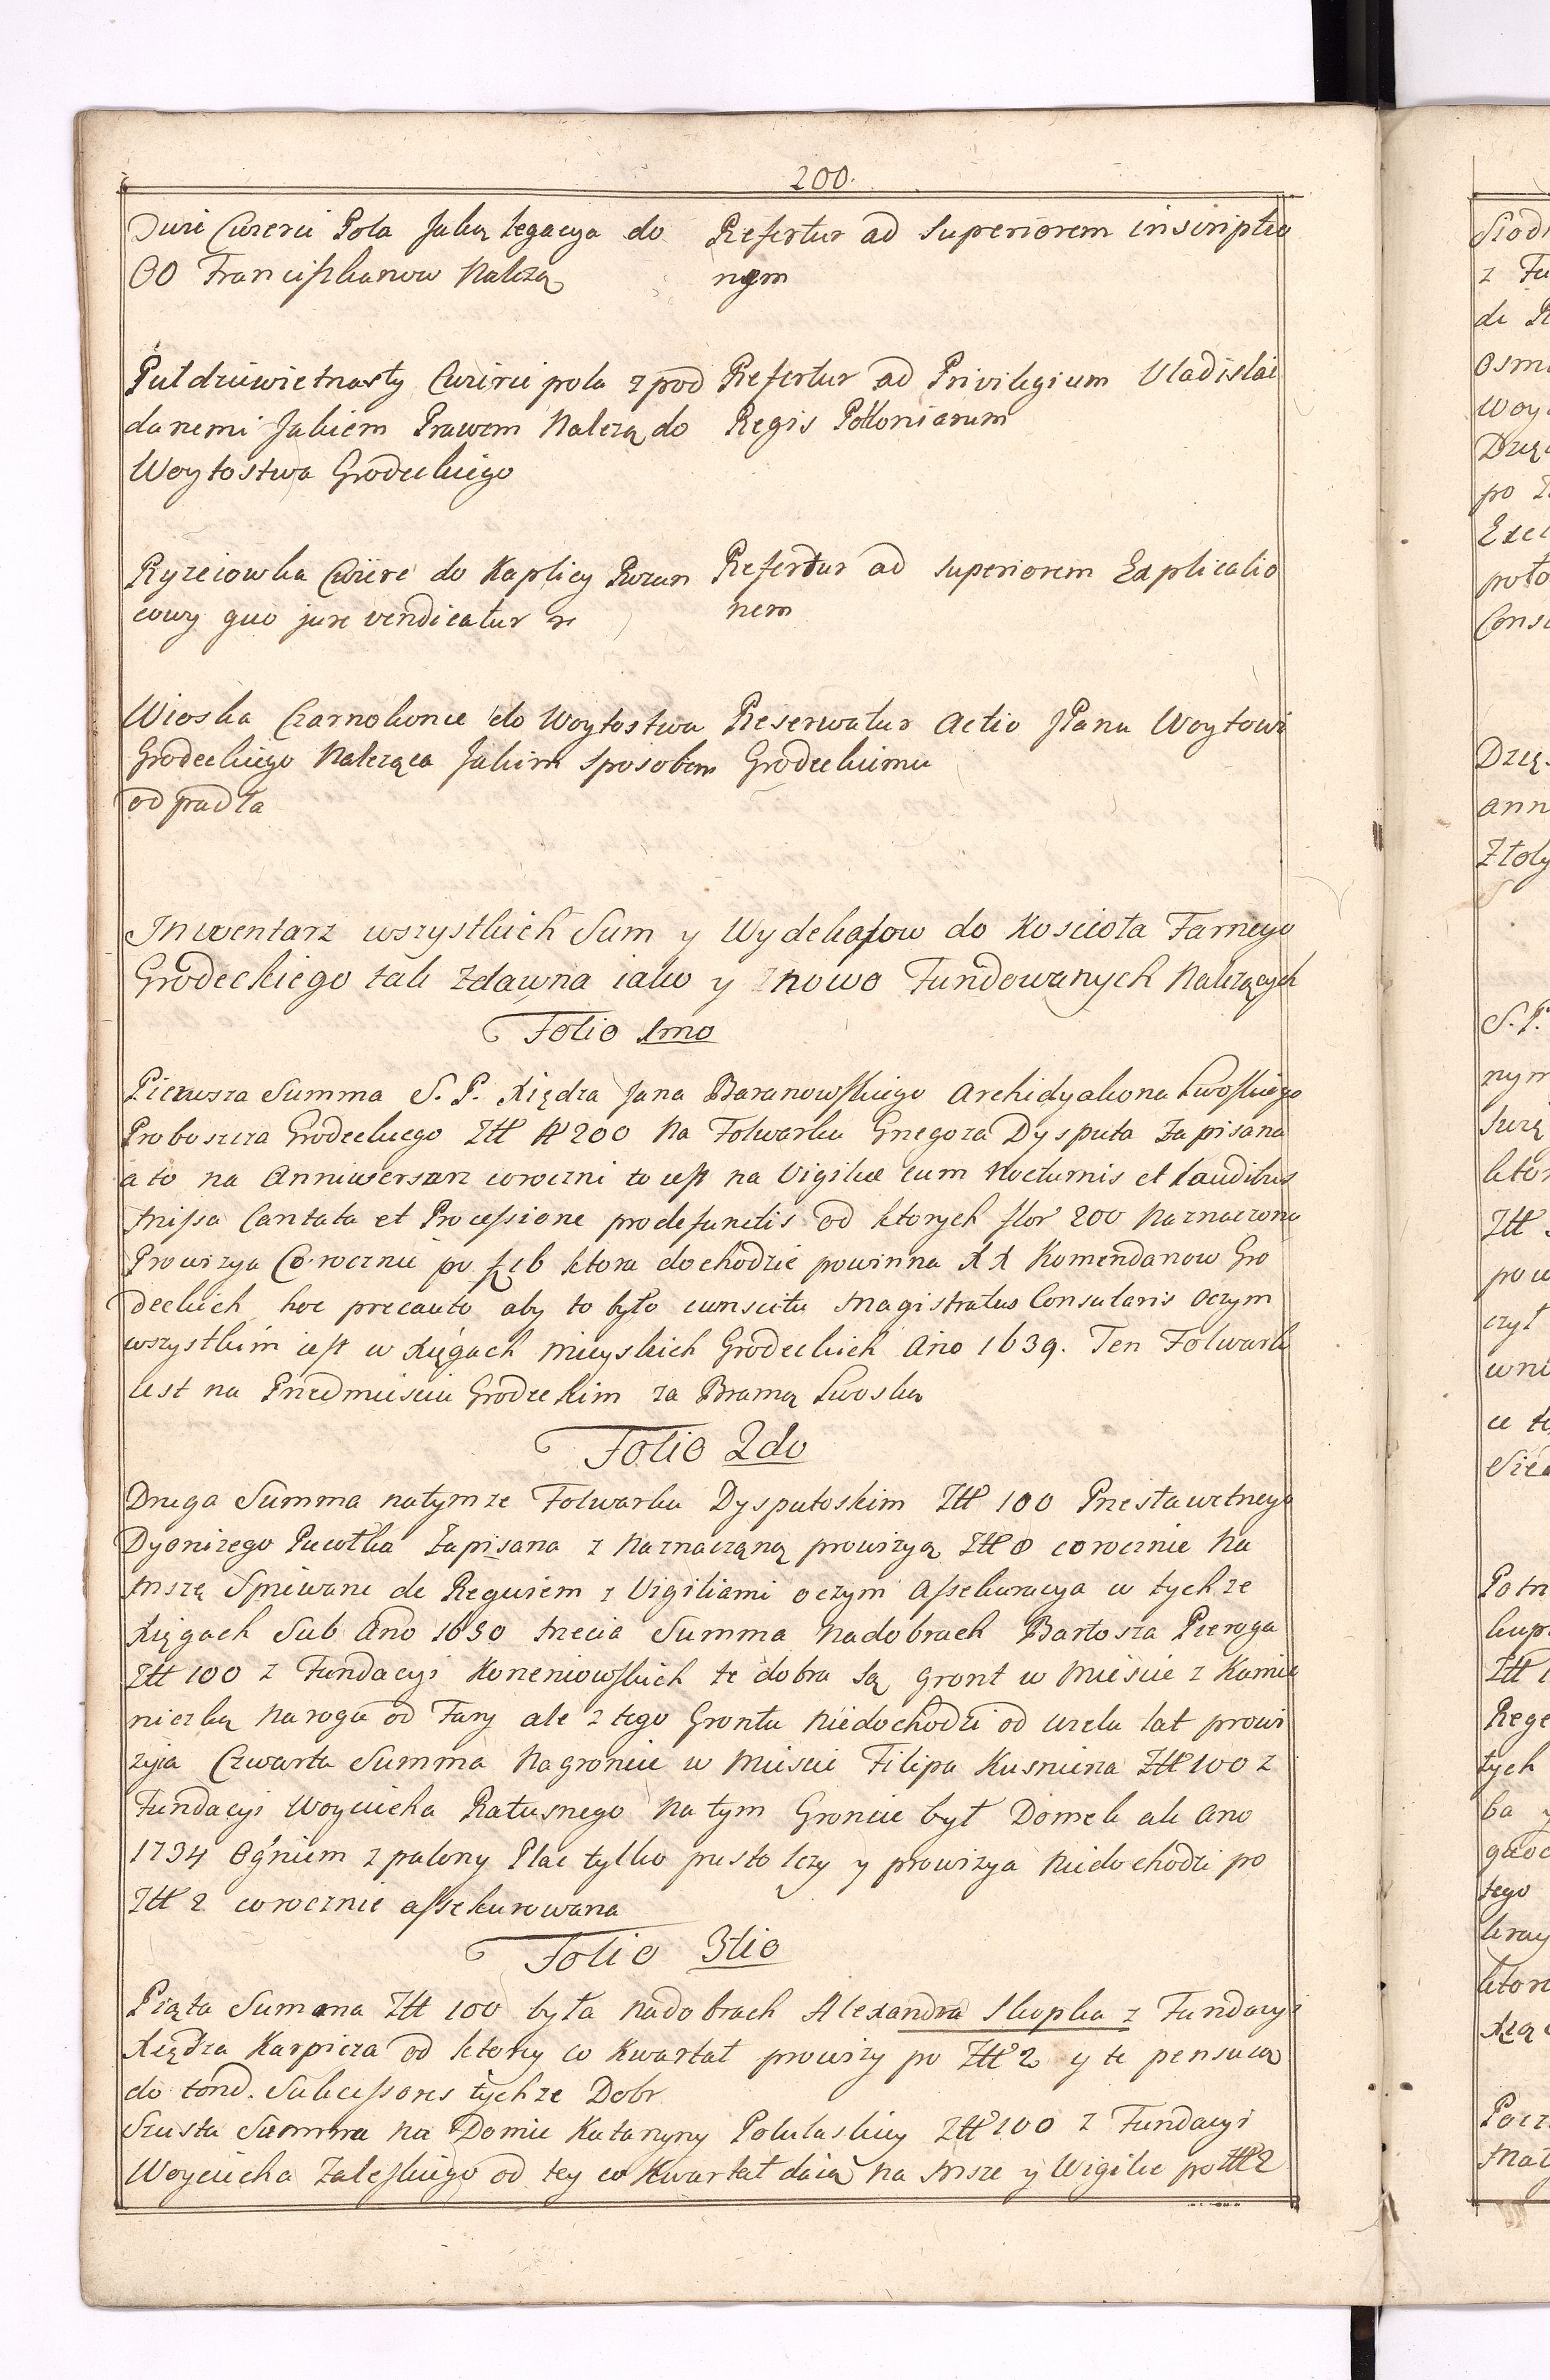 200.
Dwie Cwierci Pola Jaką legacya do
OO Franciszkanow Należą
Refertur ad Superiorem inscriptio
nem
Puł dziewietnasty Cwierci pola z pod
danemi Jakiem Prawem Należą do
Woytostwa Grodeckiego
Refertur ad Privilegium Vladislai
Regis Polloniarum
Ryzeiowka Cwierc do Kaplicy Rozan
cowy quo jure vendicatur
Refertur ad Superiorem Explicatio
nem
Wioska Czarnokonce do Woytostwa
Grodeckiego Należąca Jakim sposobem
odpadła
Reserwatur Actio JPanu Woytowi
Grodeckiemu
Inwentarz wszystkich Sum y Wyderkafow do Koscioła Farnego
Grodeckiego tak zdawna iako y znowo Fundowanych Należących
Folio 1mo
Pierwsza Summa S. P. Xiędza Jana Baranowskiego Archidyakona Lwoskiego
Proboszcza Grodeckiego Złł 200 Na Folwarku Gregorza Dysputa Zapisana
a to na Anniwersarz coroczni to iest na Vigilie cum Nocturnis et Laudibus
Missa Cantata et Processione pro defunctis od ktorych flor 200 Naznaczono
Prowizya Co rocznie po 16 ktora dochodzic powinna XX Komendanow Gro
deckich hoc precauto aby to było cunscitu Magistratus Consularis Oczym
wszystkim iest w Xięgach Mieyskich Grodeckich Ano 1639. Ten Folwark
iest na Przedmiesciu Grodeckim za Bramą Lwoską
Folio 2do
Druga Summa natymze Folwarku Dysputoskim Złł 100 Przesławetnego
Dyonizego Pacołka Zapisana z Naznaczaną prowizyą Złł 8 corocznie Na
Mszę Spiewane de Requiem z Vigiliami oczym Assekuracya w tychze
Xięgach Sub Ano 1650 trzecia Summa Nadobrach Bartosza Pieroga
Złł 100 z Fundacyi Korzeniowskich te dobra są Gront w Miescie z Kamie
niczką Narogu od Fary ale z tego Grontu Niedochodzi od wielu lat prowi
zyja Czwarta Summa Nagroncie w Miescie Filipa Kusnierza Złł 100 z
Fundacyi Woyciecha Ratusnego Na tym Groncie był Domek ale Ano
1734 Ogniem zpalony Plac tylko pusto lezy y prowizya Niedochodzi po
Złł 2 corocznie assekurowana
Folio 3tio
Piąta Summa Złł 100 była Nadobrach Alexandra Skopka z Fundacyi
Xiędza Karpicza od ktory co Kwartał prowizy po Złł 2 y te pensuią
do tond. Sukcessores tychze Dobr
Szusta Summa Na Domie Katarzyny Polulaskiey Złł 100 z Fundacyi
Woyciecha Zaleskiego od tey co Kwartał daią Na Msze y Wigilie po Złł 2